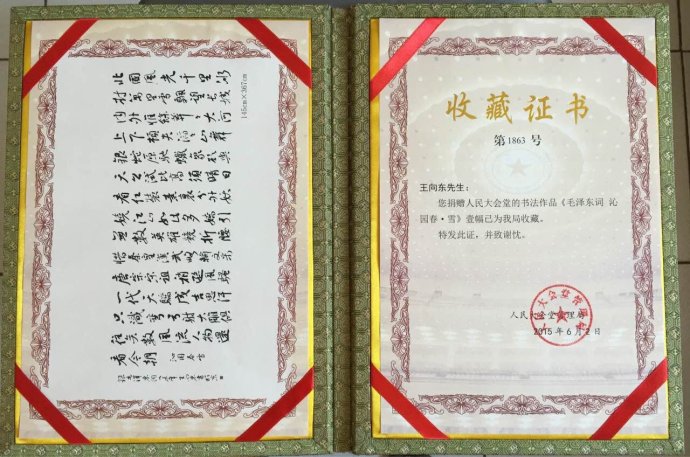 北國風光千里冰
封萬里雪飄望長城
内外惟餘莽莽大河
上下頓失滔滔山舞
銀蛇原馳蠟象欲與
天公試比高須晴日
看紅裝素裹分外妖
嬈江山如此多嬌引
無數英雄競折腰
惜秦皇漢武略輸文采
唐宗宋祖稍遜風騷
一代天驕成吉思汗
只識彎弓射大雕俱
往矣數風流人物還
看今朝 沁園春雪
145cm×367cm
收藏证书
第 1863 号
王向东先生：
您捐赠人民大会堂的书法作品《毛泽东词 沁
园春·雪》壹幅已为我局收藏。
特发此证，并致谢忱。
人民大会堂管理局
2015年6月2日